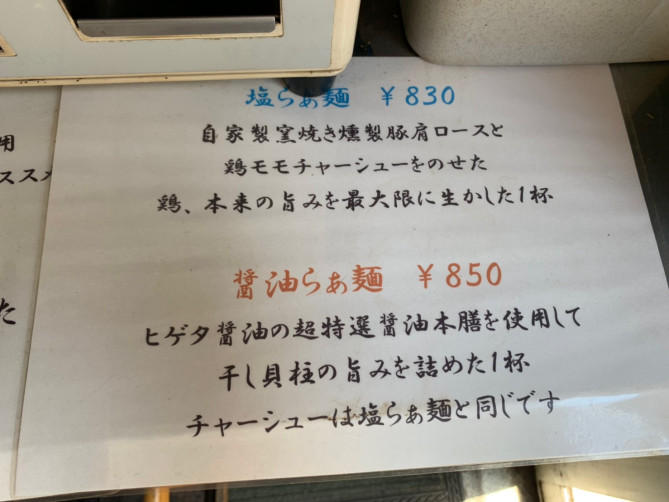 塩らぁ麺 ￥830
自家製窯焼き燻製豚肩ロースと
鶏モモチャーシューをのせた
鶏、本来の旨みを最大限に生かした1杯
醤油らぁ麺 ￥850
ヒゲタ醤油の超特選醤油本膳を使用して
干し貝柱の旨みを詰めた1杯
チャーシューは塩らぁ麺と同じです
用
ススメ
た